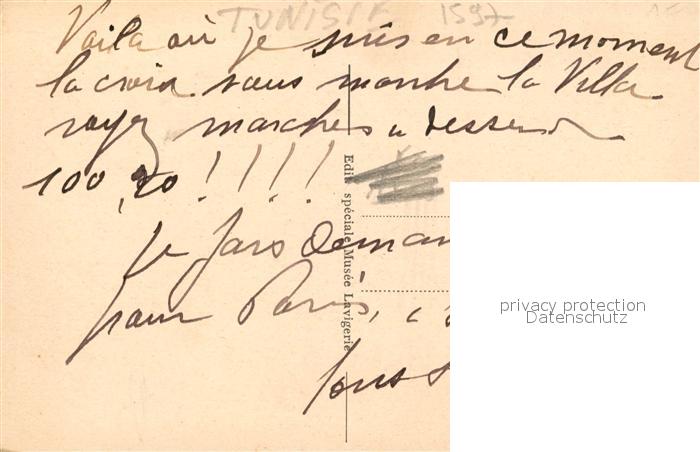 TUNISIE 1597
Voila où je suis en ce moment
la croix vous montre la Villa
voyez marches a dessendre
100,20 !!!!!
Je pars Deman
pour Paris, a
tous
Edit. spéciale Musée Lavigerie
privacy protection
Datenschutz